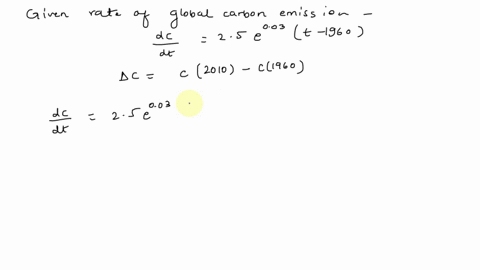 Given rate of global carbon emission -
dc/dt = 2.5 e^0.03 (t-1960)
ΔC = c (2010) - c(1960)
dc/dt = 2.5 e^0.03